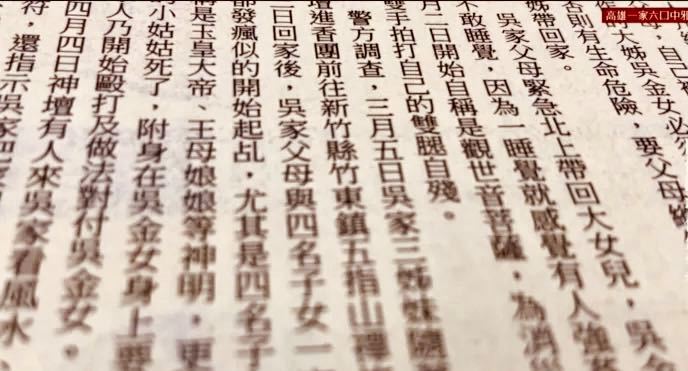 高雄一家六口中邪
，自己
的大姊吳金女必須
否則有生命危險，要父母
姊帶回家。
吳家父母緊急北上帶回大女兒，吳金
不敢睡覺，因為一睡覺就感覺有人強姦
月二日開始自稱是觀世音菩薩，為消災
雙手拍打自己的雙腿自殘。
警方調查，三月五日吳家三姊妹隨
壇進香團前往新竹縣竹東鎮五指山禪
二日回家後，吳家父母與四名子女一
部發瘋似的開始起乩，尤其是四名子
將是玉皇大帝、王母娘娘等神明，更
小姑姑死了，附身在吳金女身上要
人乃開始毆打及做法對付吳金女。
四月四日神壇有人來吳家看風水
符，還指示吳家把